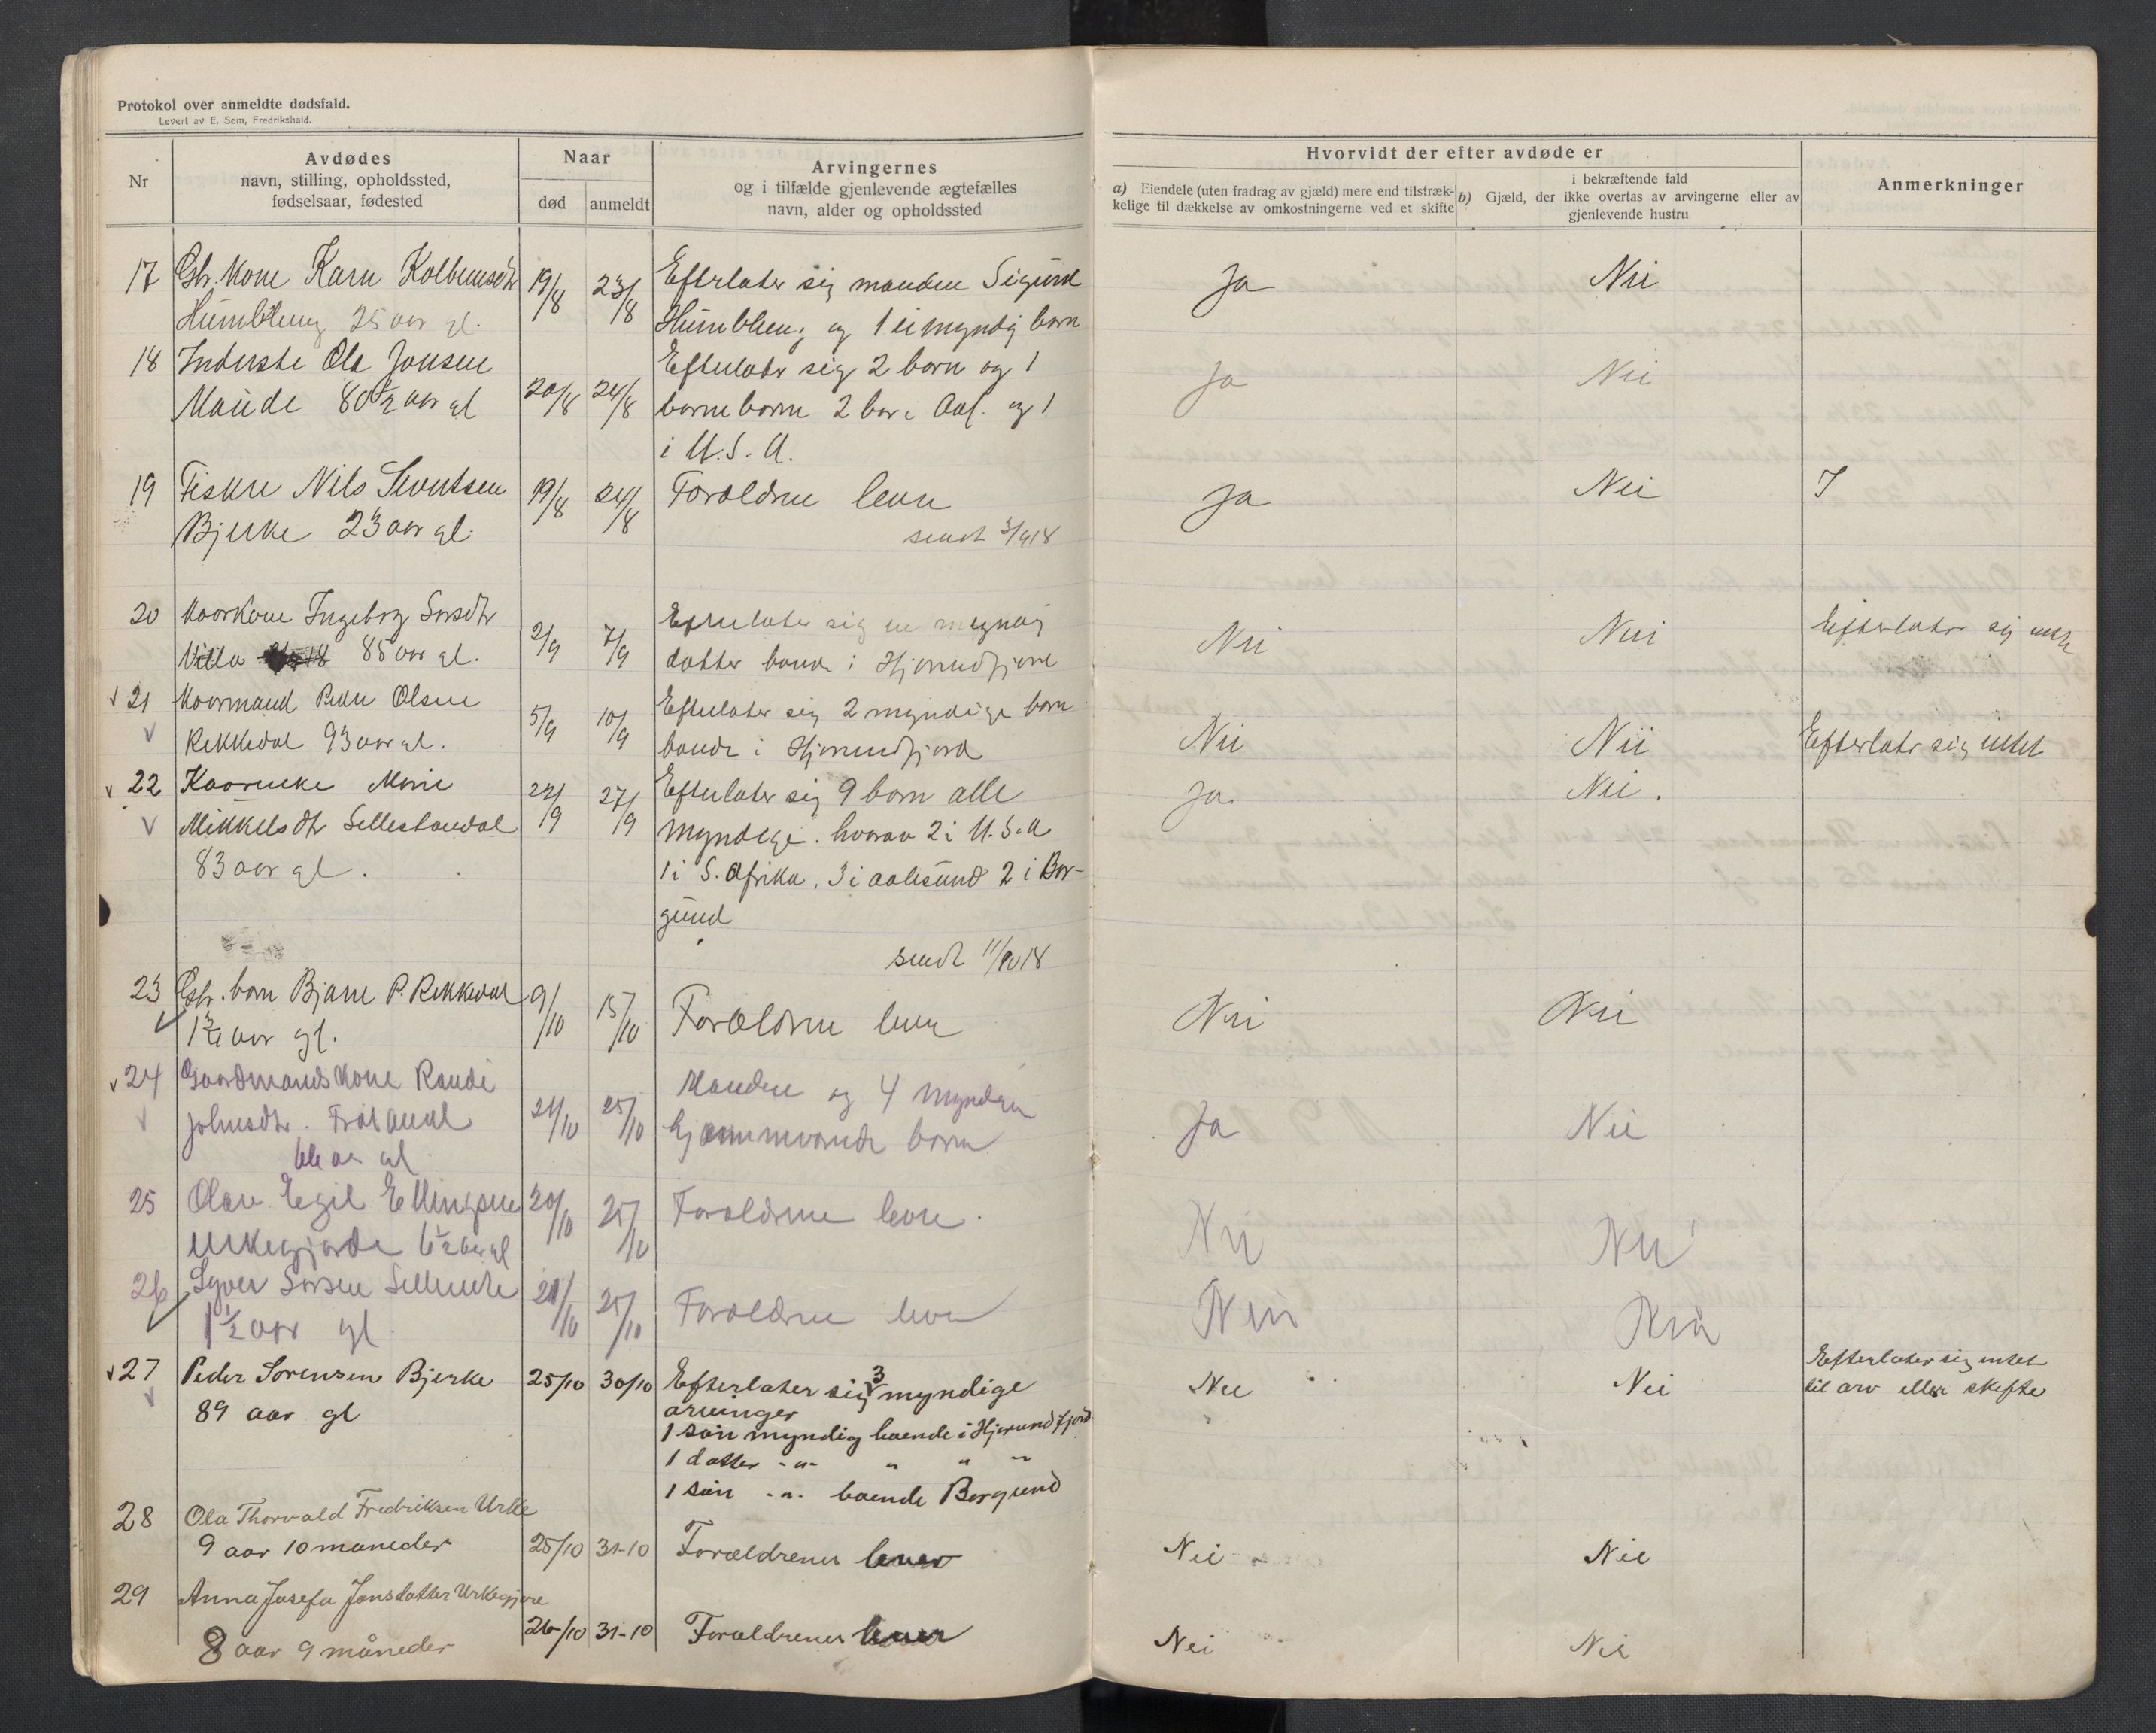 Protokol over anmeldte dødsfald.
Levert av E. Sem, Fredrikshald.
Nr
Avdødes
navn, stilling, opholdssted,
fødselsaar, fødested
Naar
død
anmeldt
Arvingernes
og i tilfælde gjenlevende ægtefælles
navn, alder og opholdssted
Hvorvidt der efter avdøde er
a) Eiendele (uten fradrag av gjæld) mere end tilstræk-
kelige til dækkelse av omkostningerne ved et skifte
i bekræftende fald
b) Gjæld, der ikke overtas av arvingerne eller av
gjenlevende hustru
Anmerkninger
17 Gbr. kone Karn 19/8 23/8 Efterlater sig manden Sigurd Ja Nei
25 aar gl. og 1 umyndig barn
18 Inderste Ola Jonsen Efterlater sig 2 born og 1
Maude 80 1/2 aar gl 20/8 24/8 barnebarn 2 bor i Aal. og 1 Ja Nei
i U.S.A.
19 Fisker Nils Sivertsen 19/8 24/8 Forældrene lever Ja Nei
Bjerke 23 aar gl. sendt 3/9 18
20 Kaarkone Ingeborg Larsdtr 2/9 7/9 Efterlater sig en myndig Nei Nei Efterlater sig intet
Villa 85 aar gl. datter boende i Hjørundfjord
21 Kaarmand Peder Olsen 5/9 10/9 Efterlater sig 2 myndige born
Rekkedal 93 aar gl. boende i Hjørundfjord Nei Nei Efterlater sig intet
22 Kaarenke Marie 22/9 27/9 Efterlater sig 9 born alle Ja Nei.
Mikkelsdtr 83 aar gl. myndige. hvorav 2 i U.S.A
1 i S. Afrika, 3 i Aalesund 2 i Bor-
gund
sendt 11/10 18
23 Gbr. barn Bjarne P. Rekkedal 9/10 15/10 Forældrene lever Nei Nei
1 3/4 aar gl.
24 Gaardmandskone Randi Manden og 4 myndige
Johnsdtr. 21/10 25/10 hjemmeværende born Ja Nei
66 aar gl
25 Olav Egil Ellingsen 20/10 25/10 Forældrene lever. Nei Nei
Urkegjerde 6 1/2 aar gl
26 Syver Larsen 21/10 25/10 Forældrene lever Nei Nei
1 1/2 aar gl.
27 Peder Sorensen Bjerke 25/10 30/10 Efterlater sig 3 myndige Nei Nei Efterlater sig intet
89 aar gl arvinger til arv eller skifte
1 søn myndig boende i Hjørundfjord
1 datter -"- " " "
1 søn -"- boende Borgund
28 Ola Thorvald Fredriksen Urke
9 aar 10 maneder 25/10 31-10 Forældrenes lever Nei Nei
29 Anna Josefa Jonsdatter Urkegjere
8 aar 9 måneder 26/10 31-10 Forældrenes lever Nei Nei